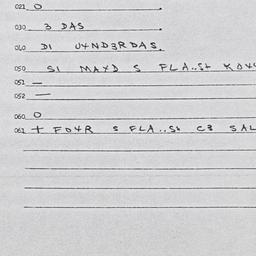 021 O
030 3 DAS
040 DI U4ND3RDAS.
050 SI MAXD S FLA..St
051 —
052 —
060 O
061 + FO4R S FLA..St C3 SAL